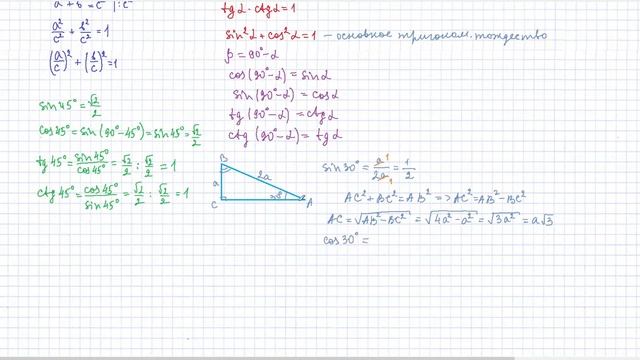 a² + b² = c² | : c²
a²/c² + b²/c² = 1
(a/c)² + (b/c)² = 1
sin 45° = √2/2
cos 45° = sin (90° - 45°) = sin 45° = √2/2
tg 45° = sin 45°/cos 45° = √2/2 : √2/2 = 1
ctg 45° = cos 45°/sin 45° = √2/2 : √2/2 = 1
tg α · ctg α = 1
sin² α + cos² α = 1 – основное тригоном. тождество
β = 90° - α
cos (90° - α) = sin α
sin (90° - α) = cos α
tg (90° - α) = ctg α
ctg (90° - α) = tg α
B
2a
a
30°
C
A
sin 30° = a¹/2a₁ = 1/2
AC² + BC² = AB² => AC² = AB² - BC²
AC = √AB² - BC² = √4a² - a² = √3a² = a√3
cos 30° =